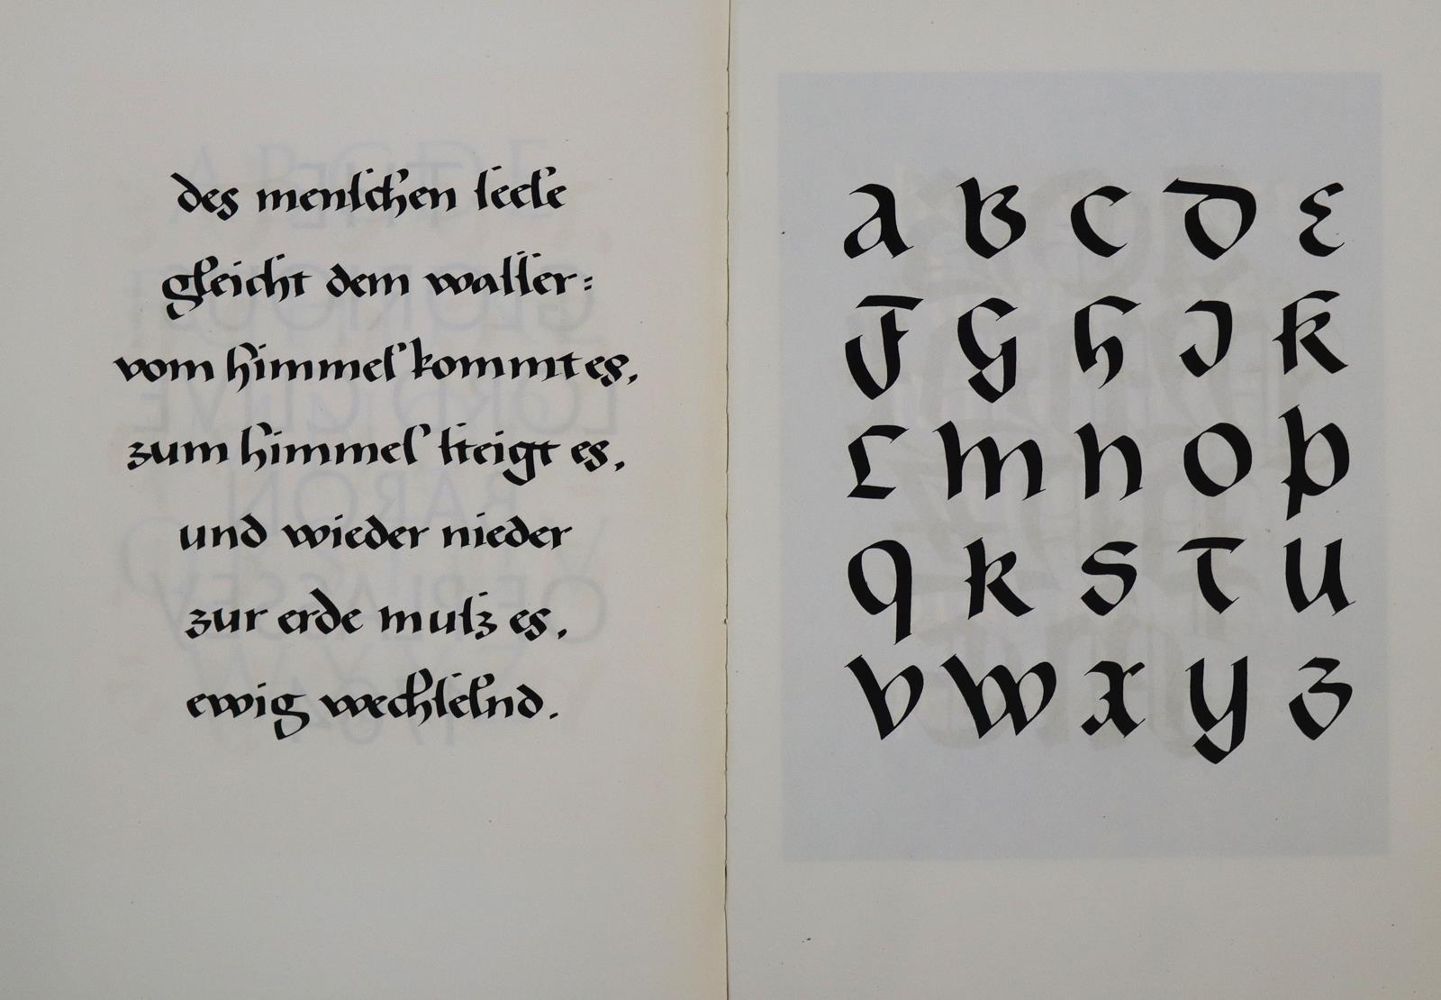 des menſchen ſeele
gleicht dem waſſer:
vom himmel kommt es,
zum himmel ſteigt es,
und wieder nieder
zur erde muſz es,
ewig wechſelnd.
A B C D E
F G H I K
L M N O P
Q R S T U
V W X Y Z